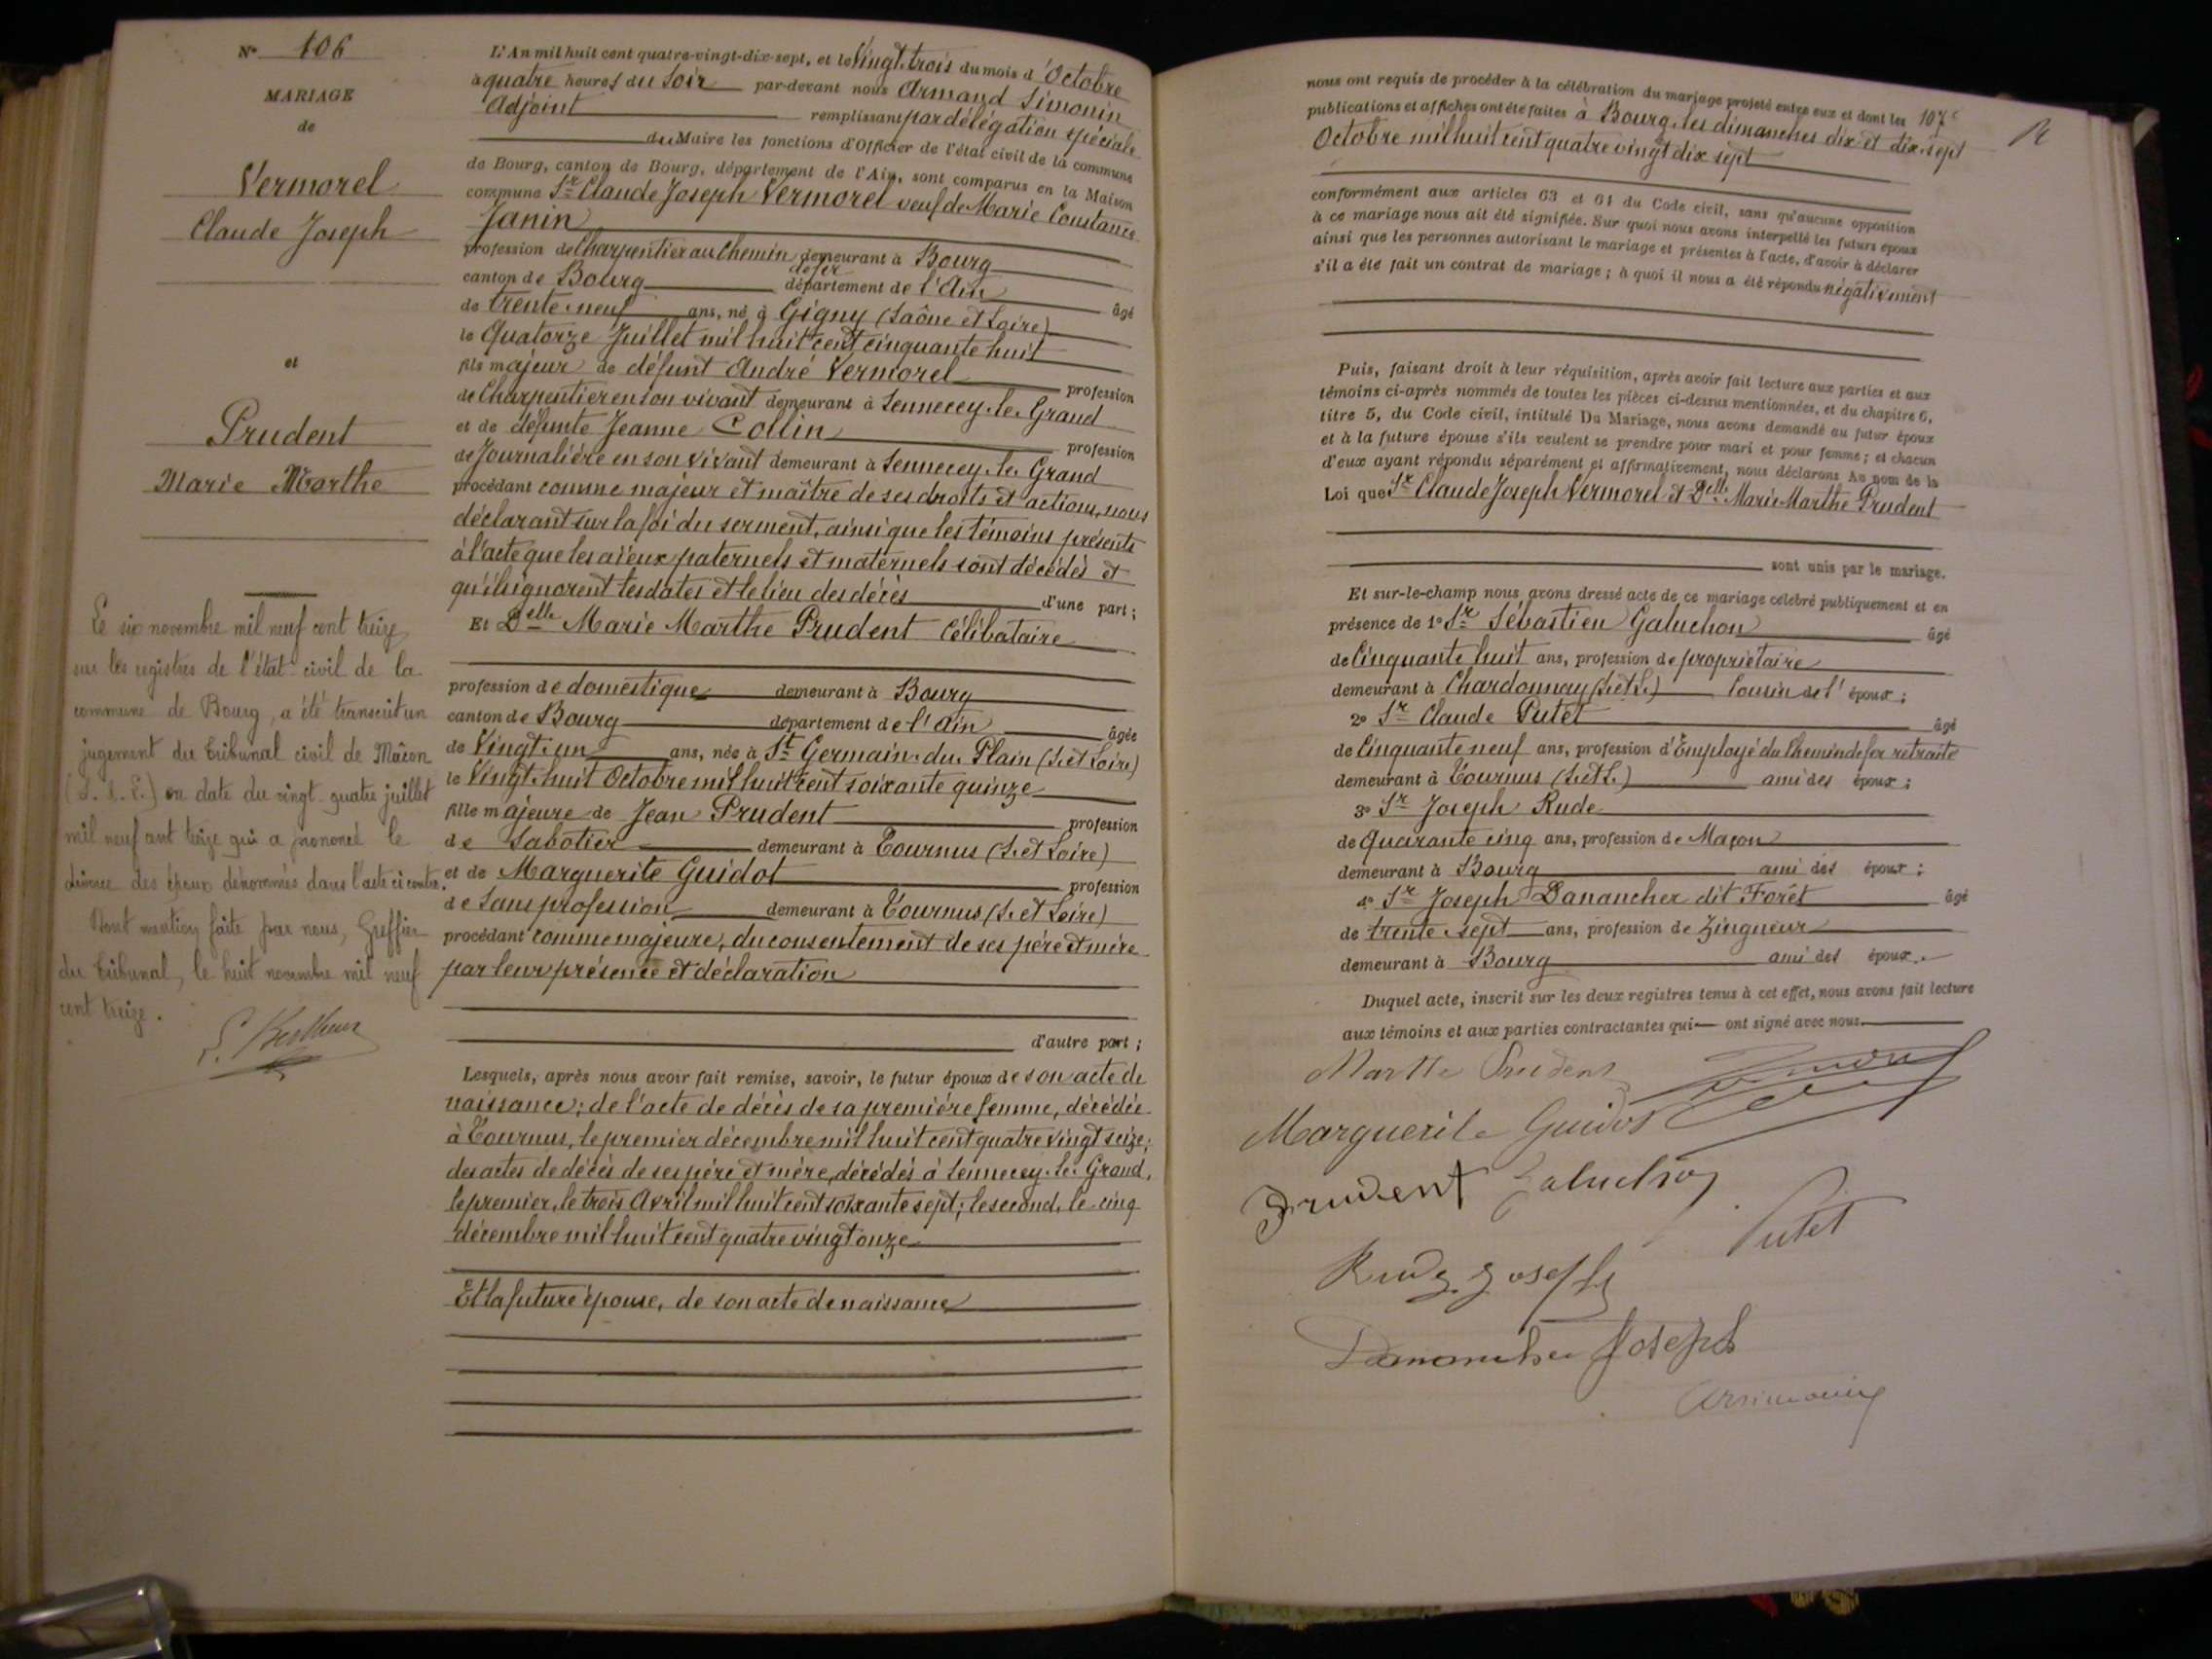 N° 106
MARIAGE
de
Vermorel
Claude Joseph
et
Prudent
Marie Marthe
Le six novembre mil neuf cent treize
sur les registres de l'état-civil de la
commune de Bourg, a été transcrit un
jugement du tribunal civil de Mâcon
(S. & L.) en date du vingt-quatre juillet
mil neuf cent treize qui a prononcé le
divorce des époux dénommés dans l'acte ci contre.
Dont mention faite par nous, Greffier
du tribunal, le huit novembre mil neuf
cent treize.
L'An mil huit cent quatre-vingt-dix-sept, et le Vingt-trois du mois d'Octobre
à quatre heures du Soir par-devant nous Armand Simonin
Adjoint remplissant par délégation spéciale
du Maire les fonctions d'Officier de l'état civil de la commune
de Bourg, canton de Bourg, département de l'Ain, sont comparus en la Maison
commune Sr Claude Joseph Vermorel veuf de Marie Constance
Janin
profession de Charpentier au Chemin de fer demeurant à Bourg
canton de Bourg département de l'Ain âgé
de trente-neuf ans, né à Gigny (Saône et Loire)
le Quatorze Juillet mil huit cent cinquante huit
fils majeur de défunt André Vermorel profession
de Charpentier en son vivant demeurant à Sennecey-le-Grand
et de défunte Jeanne Collin profession
de Journalière en son vivant demeurant à Sennecey-le-Grand
procédant comme majeur et maître de ses droits et actions, nous
déclarant sur la foi du serment, ainsi que les témoins présents
à l'acte que les aïeux paternels et maternels sont décédés et
qu'ils ignorent les dates et le lieu des décès d'une part;
Et Delle Marie Marthe Prudent Célibataire
profession de domestique demeurant à Bourg
canton de Bourg département de l'Ain âgée
de Vingt-un ans, née à St Germain-du-Plain (S. et Loire)
le Vingt-huit Octobre mil huit cent soixante quinze
fille majeure de Jean Prudent profession
de Sabotier demeurant à Tournus (S. et Loire)
et de Marguerite Guidot profession
de Sans profession demeurant à Tournus (S. et Loire)
procédant comme majeure, du consentement de ses père et mère
par leur présence et déclaration
d'autre part;
Lesquels, après nous avoir fait remise, savoir, le futur époux de son acte de
naissance; de l'acte de décès de sa première femme, décédée
à Tournus, le premier décembre mil huit cent quatre vingt seize;
des actes de décès de ses père et mère, décédés à Sennecey-le-Grand,
le premier, le trois Avril mil huit cent soixante sept; le second, le cinq
décembre mil huit cent quatre vingt onze
Et la future épouse, de son acte de naissance
107e
nous ont requis de procéder à la célébration du mariage projeté entre eux et dont les
publications et affiches ont été faites à Bourg, les dimanches dix et dix-sept
Octobre mil huit cent quatre vingt dix sept
conformément aux articles 63 et 64 du Code civil, sans qu'aucune opposition
à ce mariage nous ait été signifiée. Sur quoi nous avons interpellé les futurs époux
ainsi que les personnes autorisant le mariage et présentes à l'acte, d'avoir à déclarer
s'il a été fait un contrat de mariage; à quoi il nous a été répondu négativement
Puis, faisant droit à leur réquisition, après avoir fait lecture aux parties et aux
témoins ci-après nommés de toutes les pièces ci-dessus mentionnées, et du chapitre 6,
titre 5, du Code civil, intitulé Du Mariage, nous avons demandé au futur époux
et à la future épouse s'ils veulent se prendre pour mari et pour femme; et chacun
d'eux ayant répondu séparément et affirmativement, nous déclarons Au nom de la
Loi que Sr Claude Joseph Vermorel et Delle Marie Marthe Prudent
sont unis par le mariage.
Et sur-le-champ nous avons dressé acte de ce mariage célébré publiquement et en
présence de 1° Sr Sébastien Galuchon âgé
de Cinquante huit ans, profession de propriétaire
demeurant à Chardonnay (S. et L.) Cousin de l'époux;
2° Sr Claude Putet âgé
de Cinquante neuf ans, profession d'Employé du Chemin de fer retraité
demeurant à Tournus (S. et L.) ami des époux;
3° Sr Joseph Rude
de Quarante cinq ans, profession de Maçon
demeurant à Bourg ami des époux;
4° Sr Joseph Danancher dit Forêt âgé
de trente-sept ans, profession de Zingueur
demeurant à Bourg ami des époux.
Duquel acte, inscrit sur les deux registres tenus à cet effet, nous avons fait lecture
aux témoins et aux parties contractantes qui ont signé avec nous.
Marthe Prudent
Marguerite Guidot
Prudent Galuchon
Putet
Rude Joseph
Danancher Joseph
Arsimonin